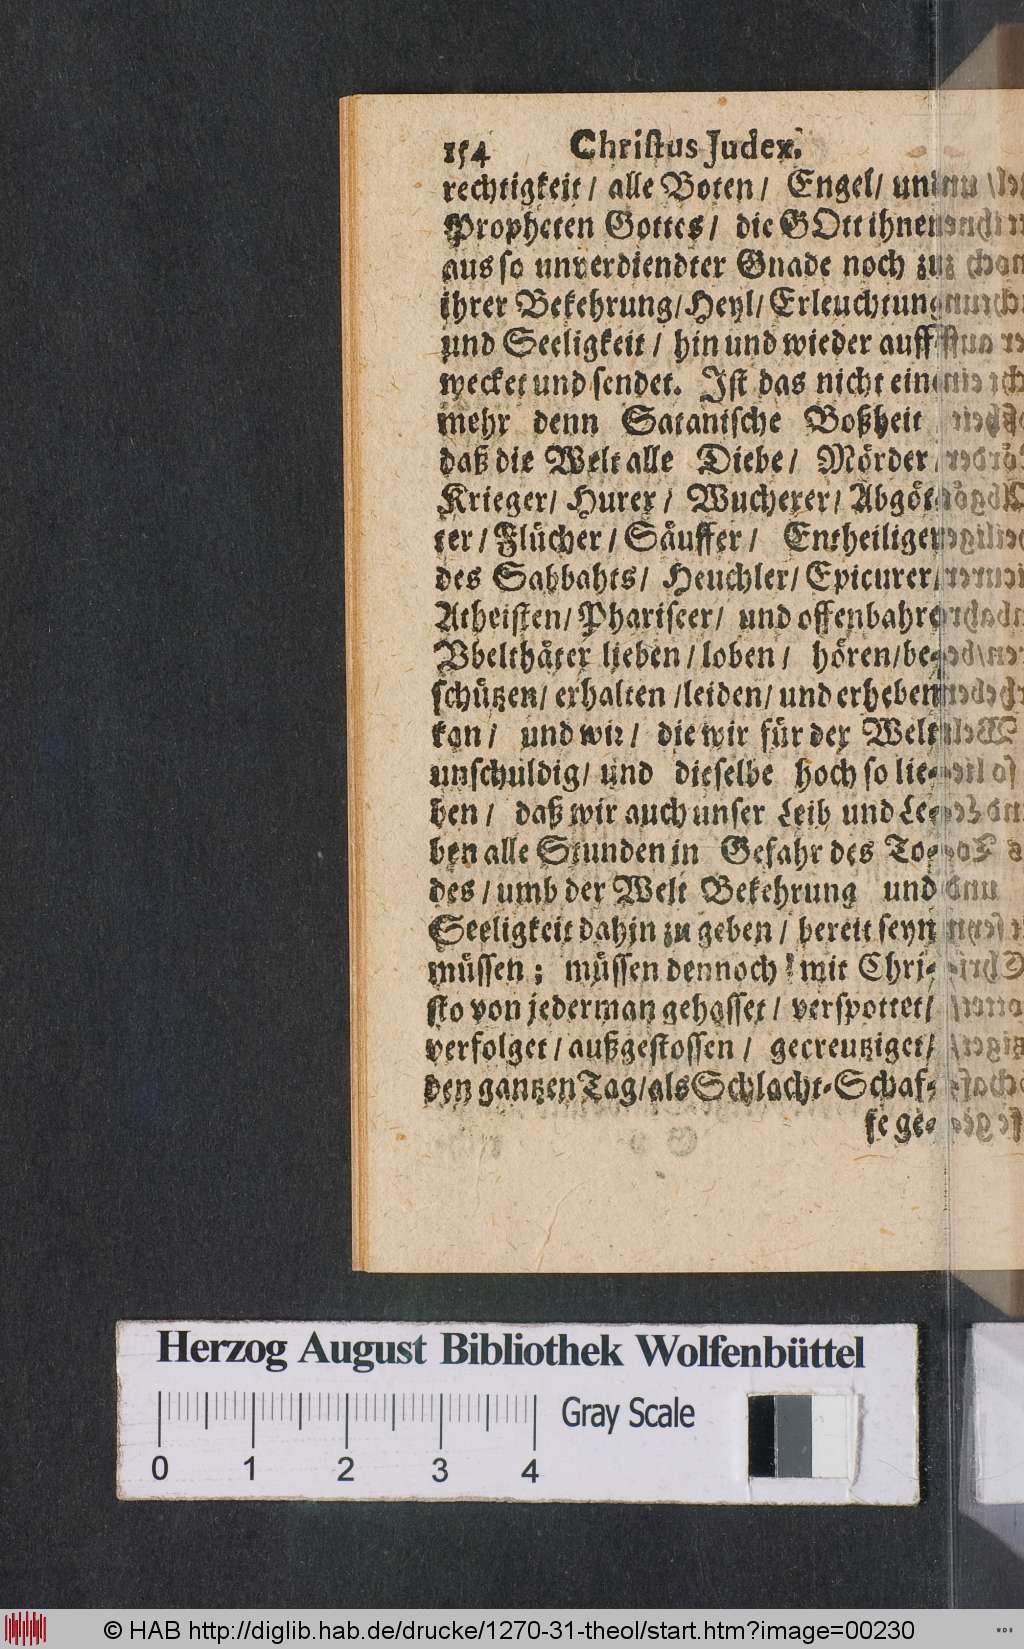 154 Christus Judex.
rechtigkeit / alle Boten / Engel / und
Propheten Gottes / die GOtt ihnen
aus so unverdiendter Gnade noch zu
ihrer Bekehrung / Heyl / Erleuchtung
und Seeligkeit / hin und wieder auff
wecket und sendet. Ist das nicht eine
mehr denn Satanische Boßheit
daß die Welt alle Diebe / Mörder /
Krieger / Hurer / Wucherer / Abgöt-
ter / Flücher / Säuffer / Entheiliger
des Sabbahts / Heuchler / Epicurer /
Atheisten / Phariseer / und offenbahre
Vbelthäter lieben / loben / hören / be-
schützen / erhalten / leiden / und erheben
kan / und wir / die wir für der Welt
unschuldig / und dieselbe hoch so lie-
ben / daß wir auch unser Leib und Le-
ben alle Stunden in Gefahr des To-
des / umb der Welt Bekehrung und
Seeligkeit dahin zu geben / bereit seyn
müssen ; müssen dennoch mit Chri-
sto von jederman gehasset / verspottet /
verfolget / außgestossen / gecreutziget /
den gantzen Tag / als Schlacht-Schaf-
fe ge-
Herzog August Bibliothek Wolfenbüttel
0 1 2 3 4 Gray Scale
© HAB http://diglib.hab.de/drucke/1270-31-theol/start.htm?image=00230